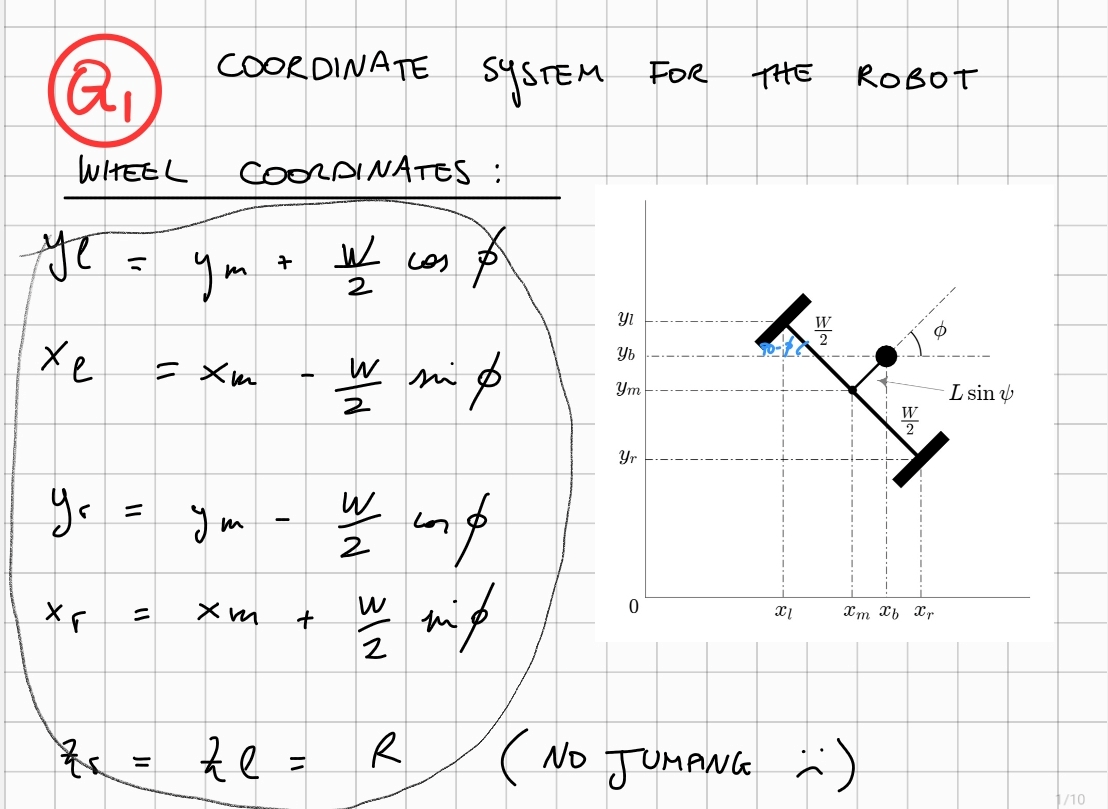 Q1 COORDINATE SYSTEM FOR THE ROBOT
WHEEL COORDINATES:
yl = ym + W/2 cos ϕ
xl = xm - W/2 sin ϕ
yr = ym - W/2 cos ϕ
xr = xm + W/2 sin ϕ
zr = zl = R (NO JUMANG :()
yl
W/2
ϕ
yb
90-ϕ
ym
L sin ψ
W/2
yr
0
xl xm xb xr
1/10